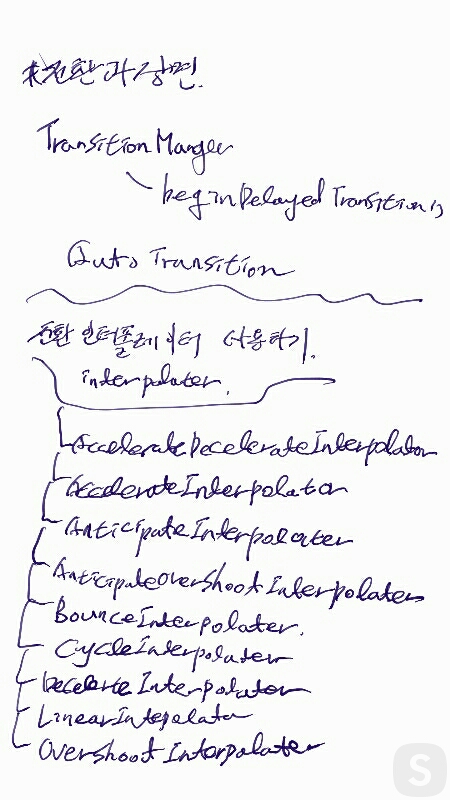 *전환과 장면.
Transition Manger
beginDelayed Transition()
Auto Transition
전환 인터폴레이터 사용하기.
interpolater.
AccelerateDecelerateInterpolator
AccelerateInterpolator
AnticipateInterpolater
AnticipateOvershootInterpolater
BounceInterpolater.
CycleInterpolater
Decelerte Interpolator
LinearIntepolator
Overshoot Interpolater
S